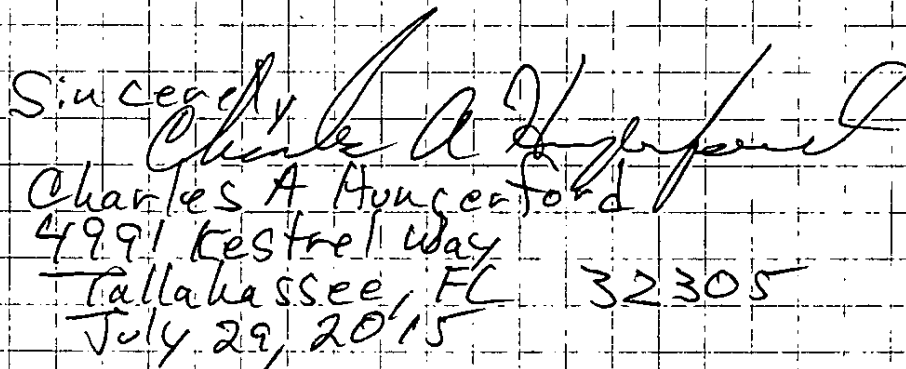 Sincerely
Charles A Hungerford
Charles A Hungerford
4991 Kestrel Way
Tallahassee, FL 32305
July 29, 2015